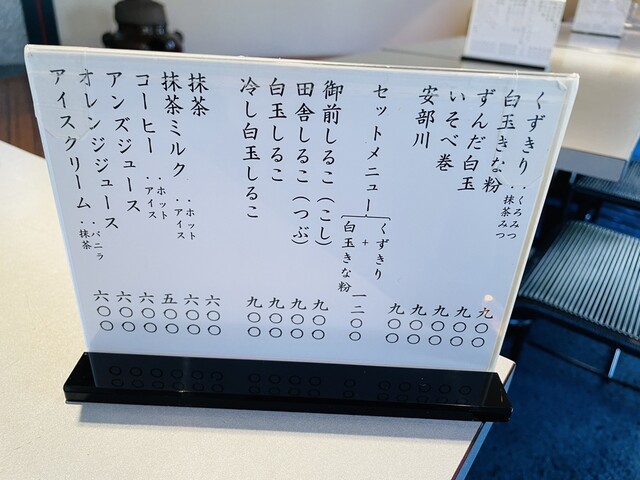 くずきり‥くろみつ 九〇〇
‥抹茶みつ
白玉きな粉 九〇〇
ずんだ白玉 九〇〇
いそべ巻 九〇〇
安部川 九〇〇
セットメニュー くずきり+白玉きな粉 一二〇〇
御前しるこ(こし) 九〇〇
田舎しるこ(つぶ) 九〇〇
白玉しるこ 九〇〇
冷し白玉しるこ 九〇〇
抹茶 六〇〇
抹茶ミルク‥ホット 六〇〇
‥アイス
コーヒー‥ホット 五〇〇
‥アイス
アンズジュース 六〇〇
オレンジジュース 六〇〇
アイスクリーム‥バニラ 六〇〇
‥抹茶